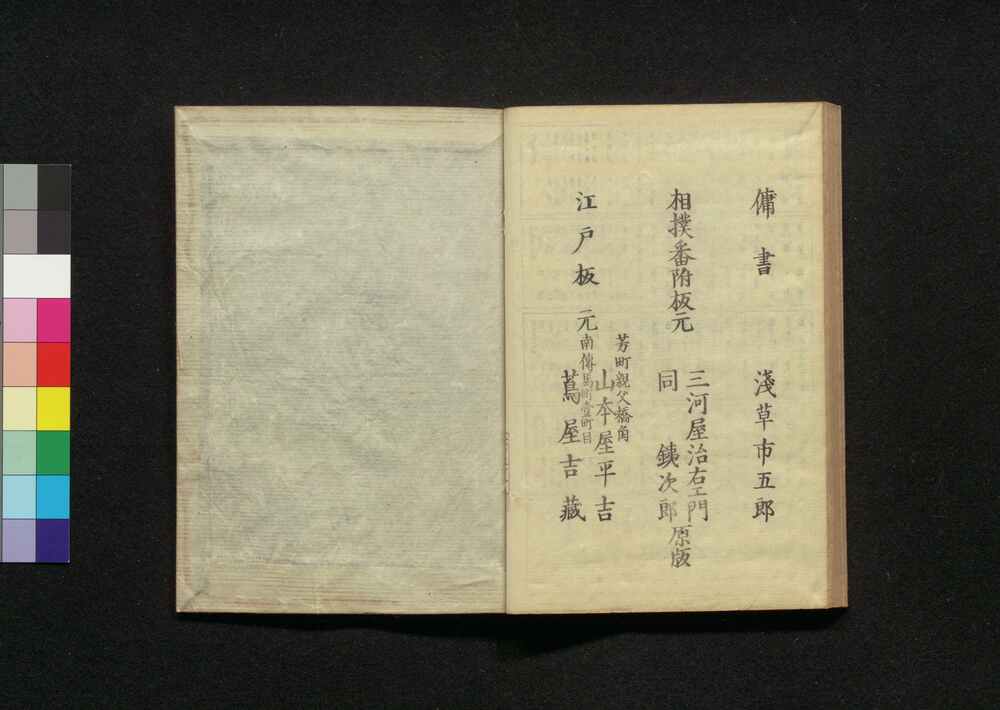 傭書 淺草市五郎
相撲番附板元 三河屋治右エ門
同 銕次郎 原版
江戸板元 芳町親父橋角
山本屋平吉
南傳馬町壹町目
蔦屋吉藏